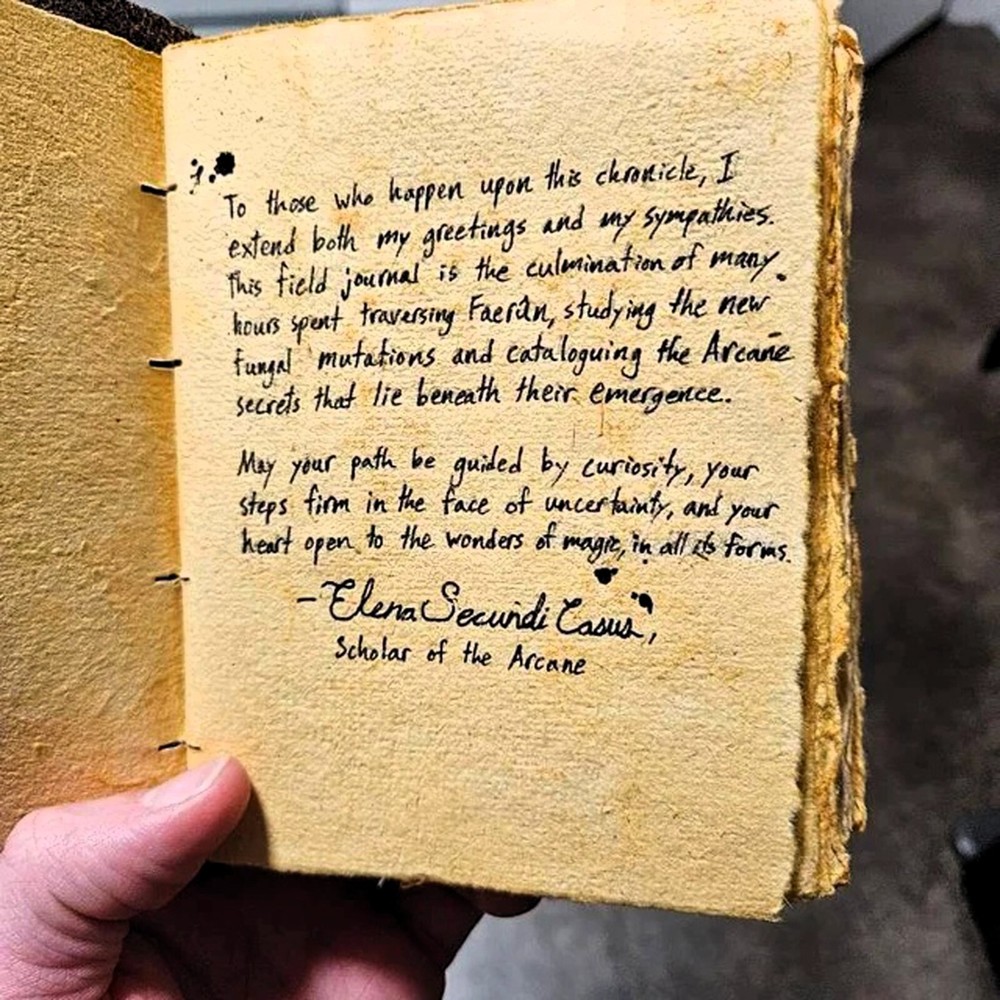 To those who happen upon this chronicle, I
extend both my greetings and my sympathies.
This field journal is the culmination of many
hours spent traversing Faerûn, studying the new
fungal mutations and cataloguing the Arcane
secrets that lie beneath their emergence.
May your path be guided by curiosity, your
steps firm in the face of uncertainty, and your
heart open to the wonders of magic, in all its forms.
- Elena Secundi Casus,
Scholar of the Arcane